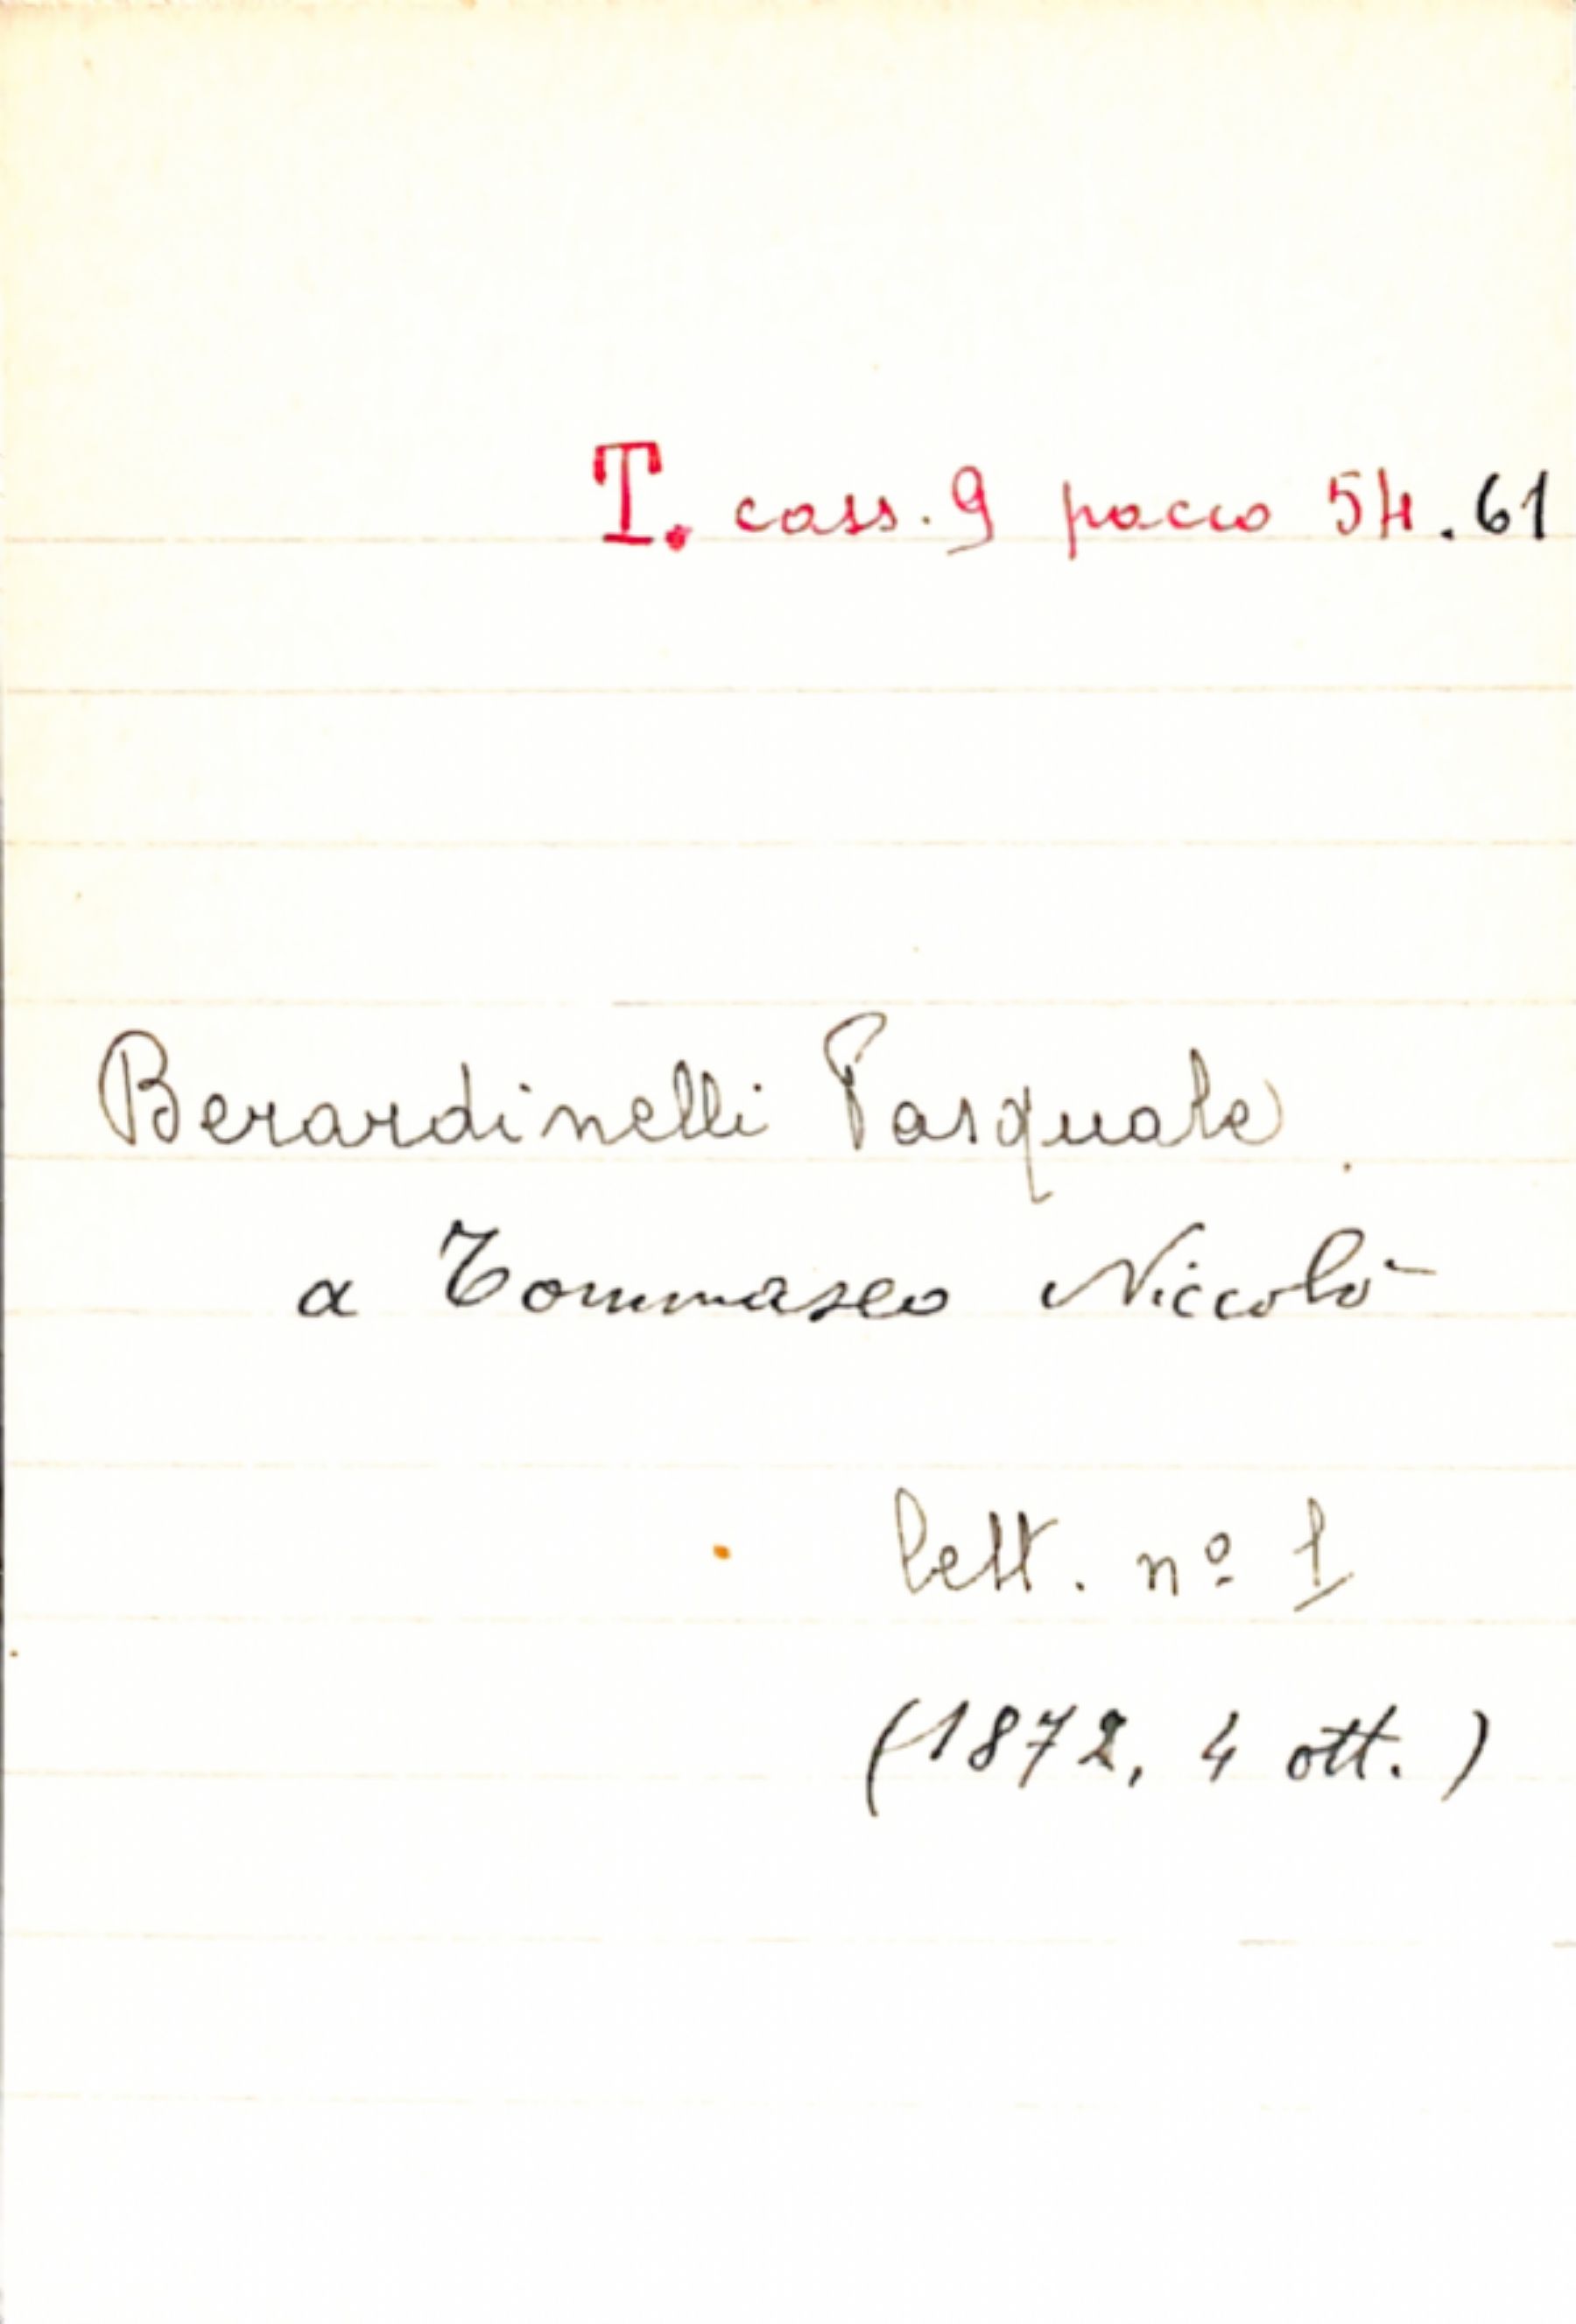 T. cass. 9 pacco 54.61
Berardinelli Pasquale
a Tommaseo Niccolò
lett. nº 1
(1872, 4 ott.)